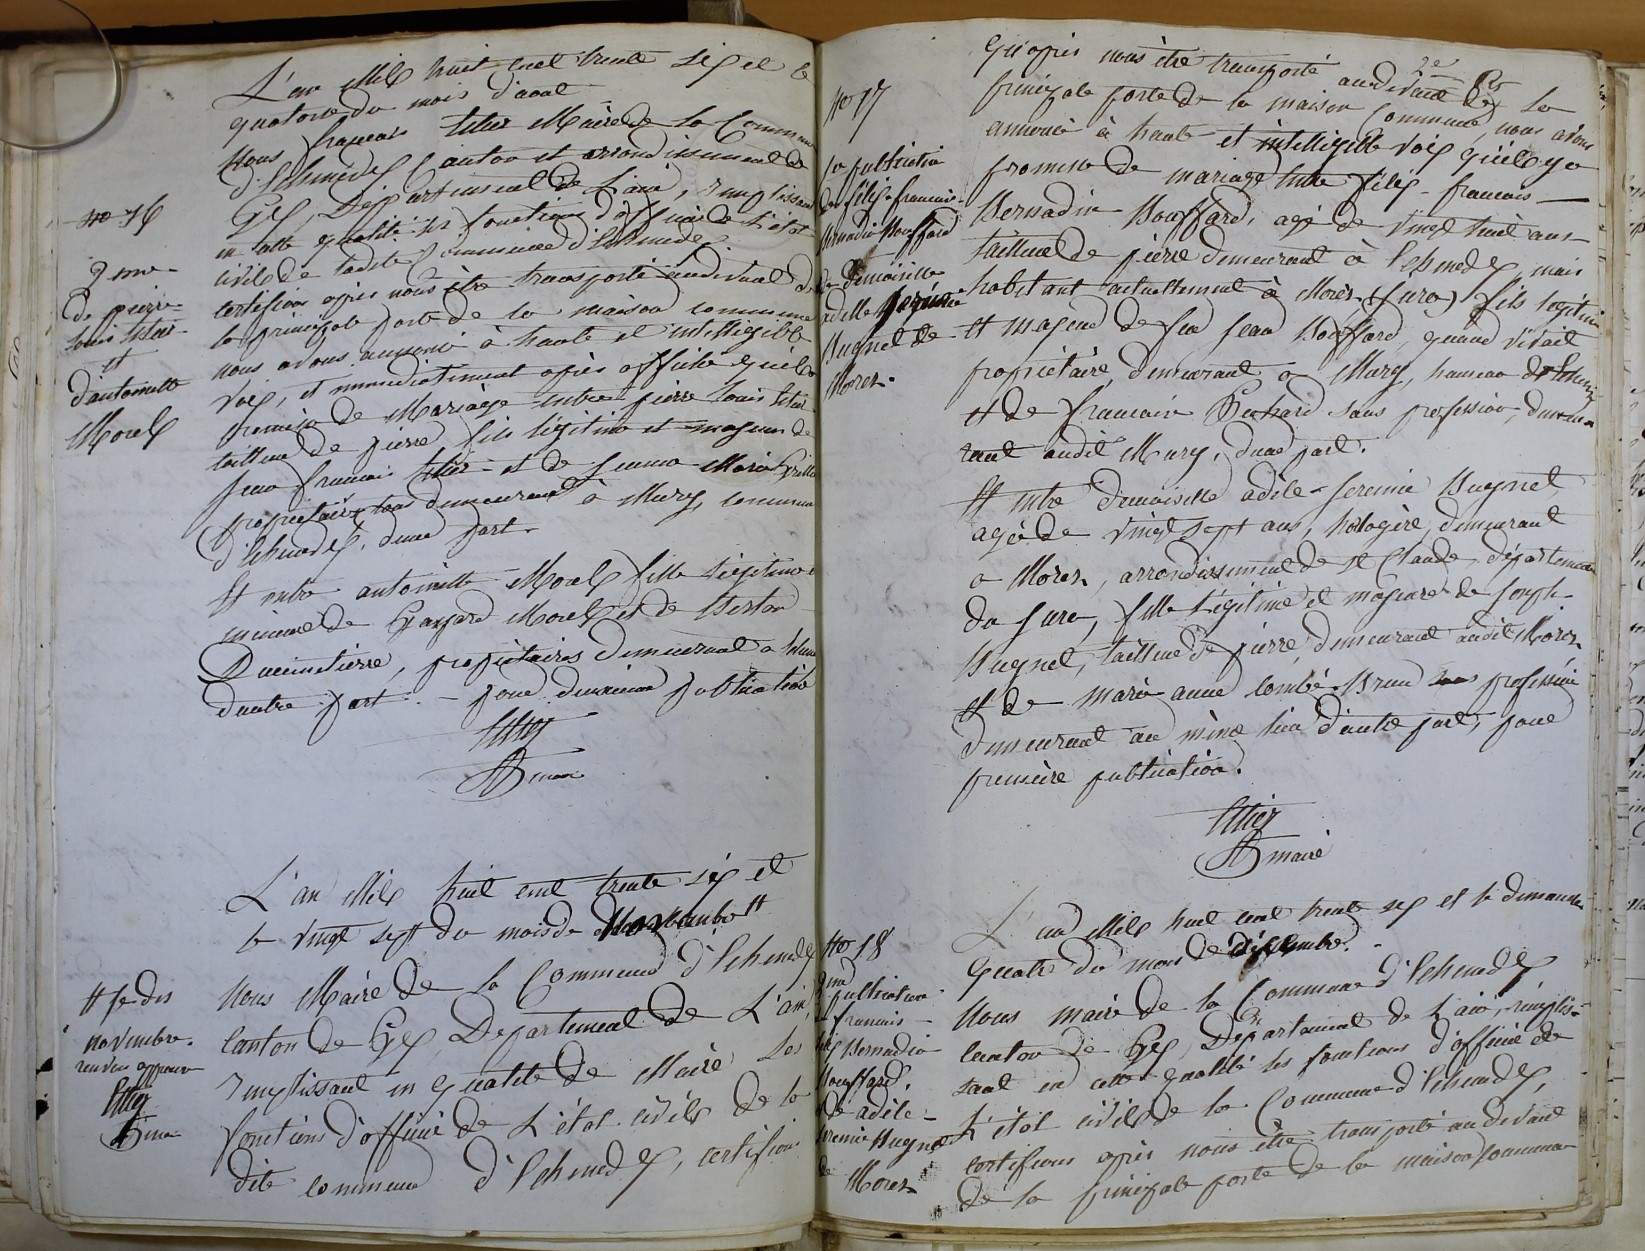 L'an Mil huit cent trente six et le
quatorze du mois d'aout
Nous françois Maire de la Commune
d'Echenevex Canton et arrondissement de
Gex, Département de L'ain, remplissant
en cette qualité les fonctions d'officier de L'état
civil de ladite Commune d'Echenevex
certifions après nous être transporté au devant de
la principale porte de la maison commune
nous avons annoncé à haute et intelligible
voix, et immediatement après affiché qu'il y a
promesse de Mariage entre pierre Louis
tailleur de pierre fils légitime et majeur de
jean françois et de jeanne Marie
propriétaires tous demeurant à Mury, commune
d'Echenevex, d'une part.
Et entre antoinette Morel fille légitime et
mineure de Gaspard Morel et de
Ducimetière, propriétaires demeurant à
d'autre part. - pour deuxième publication
maire
No 16
2me
de pierre
Louis
et
d'antoinette
Morel
L'an Mil huit cent trente six et
le vingt sept du mois de Novembre #
Nous Maire de la Commune d'Echenevex
Canton de Gex Département de L'ain,
remplissant en qualité de Maire les
fonctions d'officier de L'état civil de la
dite commune d'Echenevex, certifions
# le dit
novembre.
renvoi approuvé
maire
No 17
1e publication
de félix françois
Bernadin Bouffard
de demoiselle
adelle
Bugnet de
Morez.
Qu'après nous être transporté au devant de la
principale porte de la maison Commune, nous avons
annoncé à haute et intelligible voix qu'il y a
promesse de mariage entre félix - françois
Bernadin Bouffard, agé de vingt huit ans
tailleur de pierre demeurant à Echenevex, mais
habitant actuellement à Morez (jura) fils légitime
et majeur de feu jean Bouffard, quand vivait
propriétaire, demeurant à Mury, hameau
et de françoise sans profession, demeu-
rant audit Mury, d'une part.
Et entre demoiselle adèle - jeremie Bugnet,
agée de vingt sept ans, horlogère, demeurant
à Morez, arrondissement de St Claude, département
du jura, fille légitime et majeure de joseph
Bugnet, tailleur de pierre, demeurant audit Morez
et de marie anne lombé. Brun sans profession
demeurant au même lieu d'autre part, pour
première publication.
maire
No 18
2me
publication
françois
Bernadin
Bouffard,
de adèle -
jeremie Bugnet
de
Morez
L'an Mil huit cent trente six et le dimanche
Quatre du mois de décembre.
Nous maire de la Commune d'Echenevex
Canton de Gex, Département de L'ain, remplis-
sant en cette qualité les fonctions d'officier de
L'état civil de la Commune d'Echenevex,
certifions après nous être transporté au devant
de la principale porte de la maison Commune